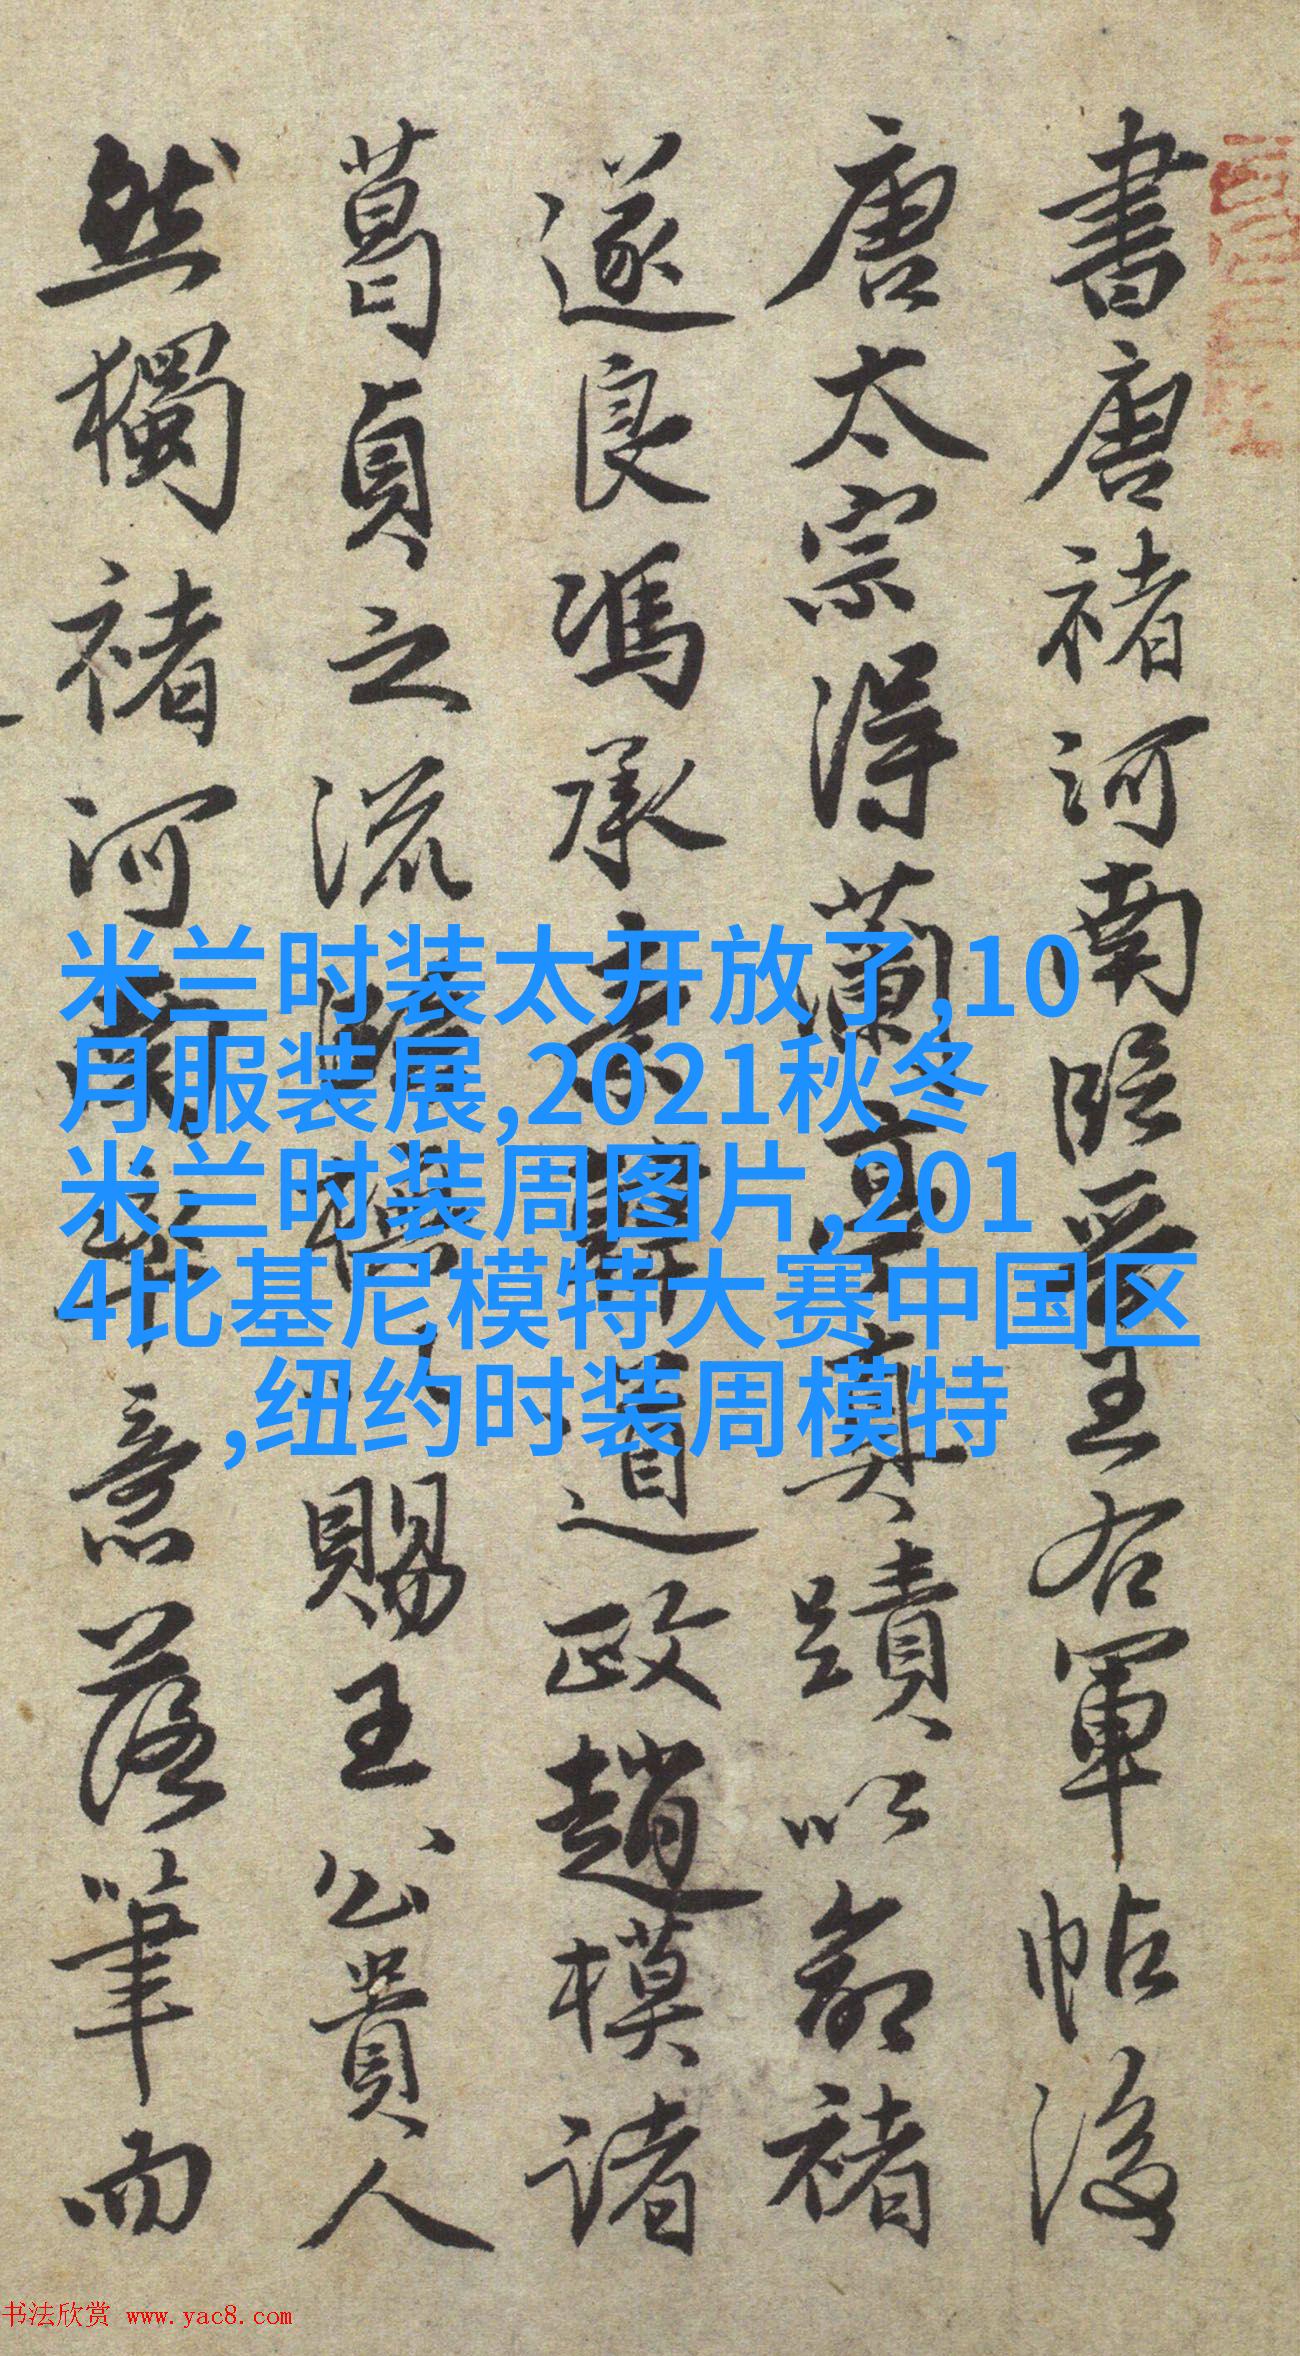 書唐褚河南臨晉王右軍帖後
唐太宗得蘭亭真蹟以命褚
遂良馮承素韓道政趙模諸
葛貞之流臨以賜王公貴人
然獨褚河南率意落筆而
米兰时装太开放了,10
月服装展,2021秋冬
米兰时装周图片,201
4比基尼模特大赛中国区
,纽约时装周模特
书法欣赏 www.yac8.com